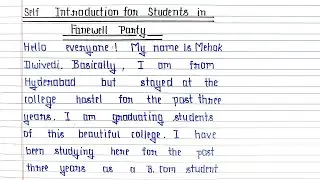 Self Introduction for Students in
Farewell Party
Hello everyone! My name is Mehak
Dwivedi. Basically, I am from
Hyderabad but stayed at the
college hostel for the past three
years. I am graduating students
of this beautiful college. I have
been studying here for the past
three years as a B.com student